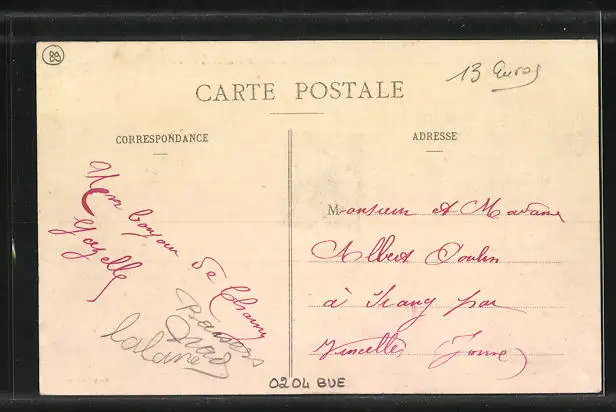 89
13 euros
CARTE POSTALE
CORRESPONDANCE
ADRESSE
Un bonjour de Charny
Gazelle
Baisers
Monsieur et Madame
Albert Poulin
à Irancy par
Vincelles (Yonne)
0204 BUE